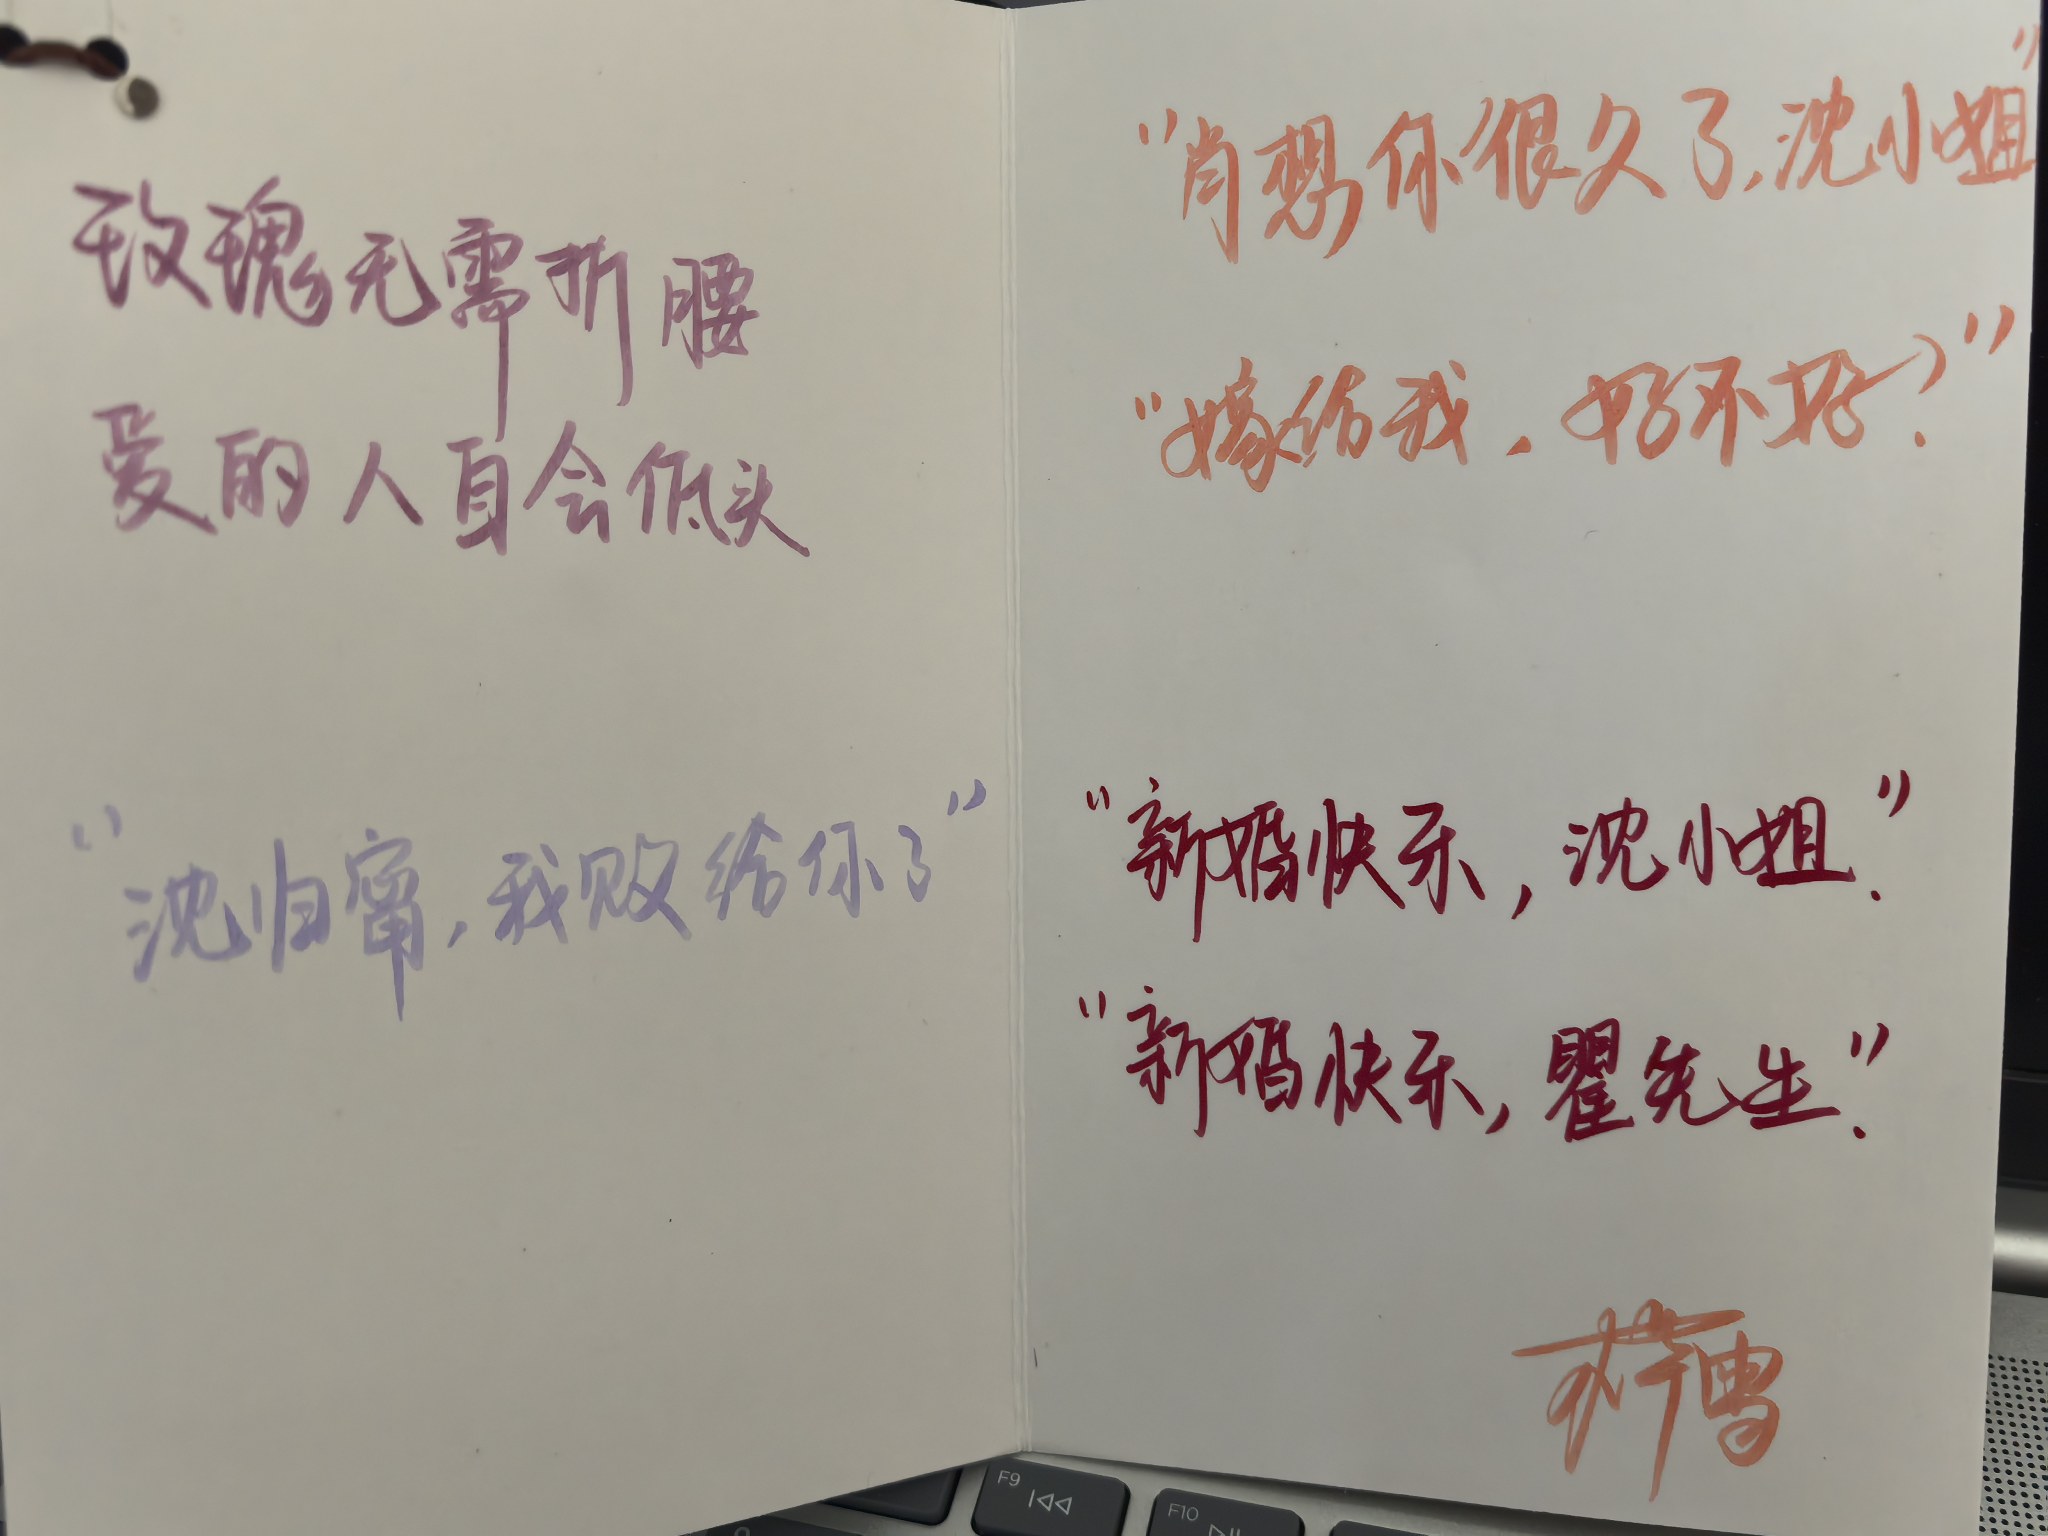 玫瑰无需折腰
爱的人自会低头
“沈归甯,我败给你了”
“肖想你很久了,沈小姐”
“嫁给我,好不好?”
“新婚快乐,沈小姐.”
“新婚快乐,瞿先生.”
F9
F10